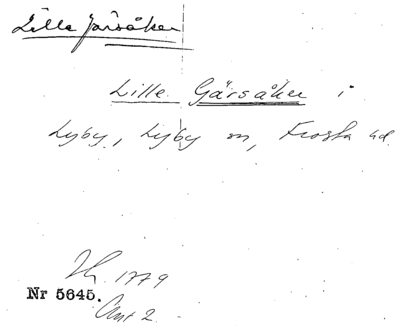 Lille Järsåker
Lille Gärsåker i
Lyby, Lyby sn, Frosta hd.
1779
Nr 5645.